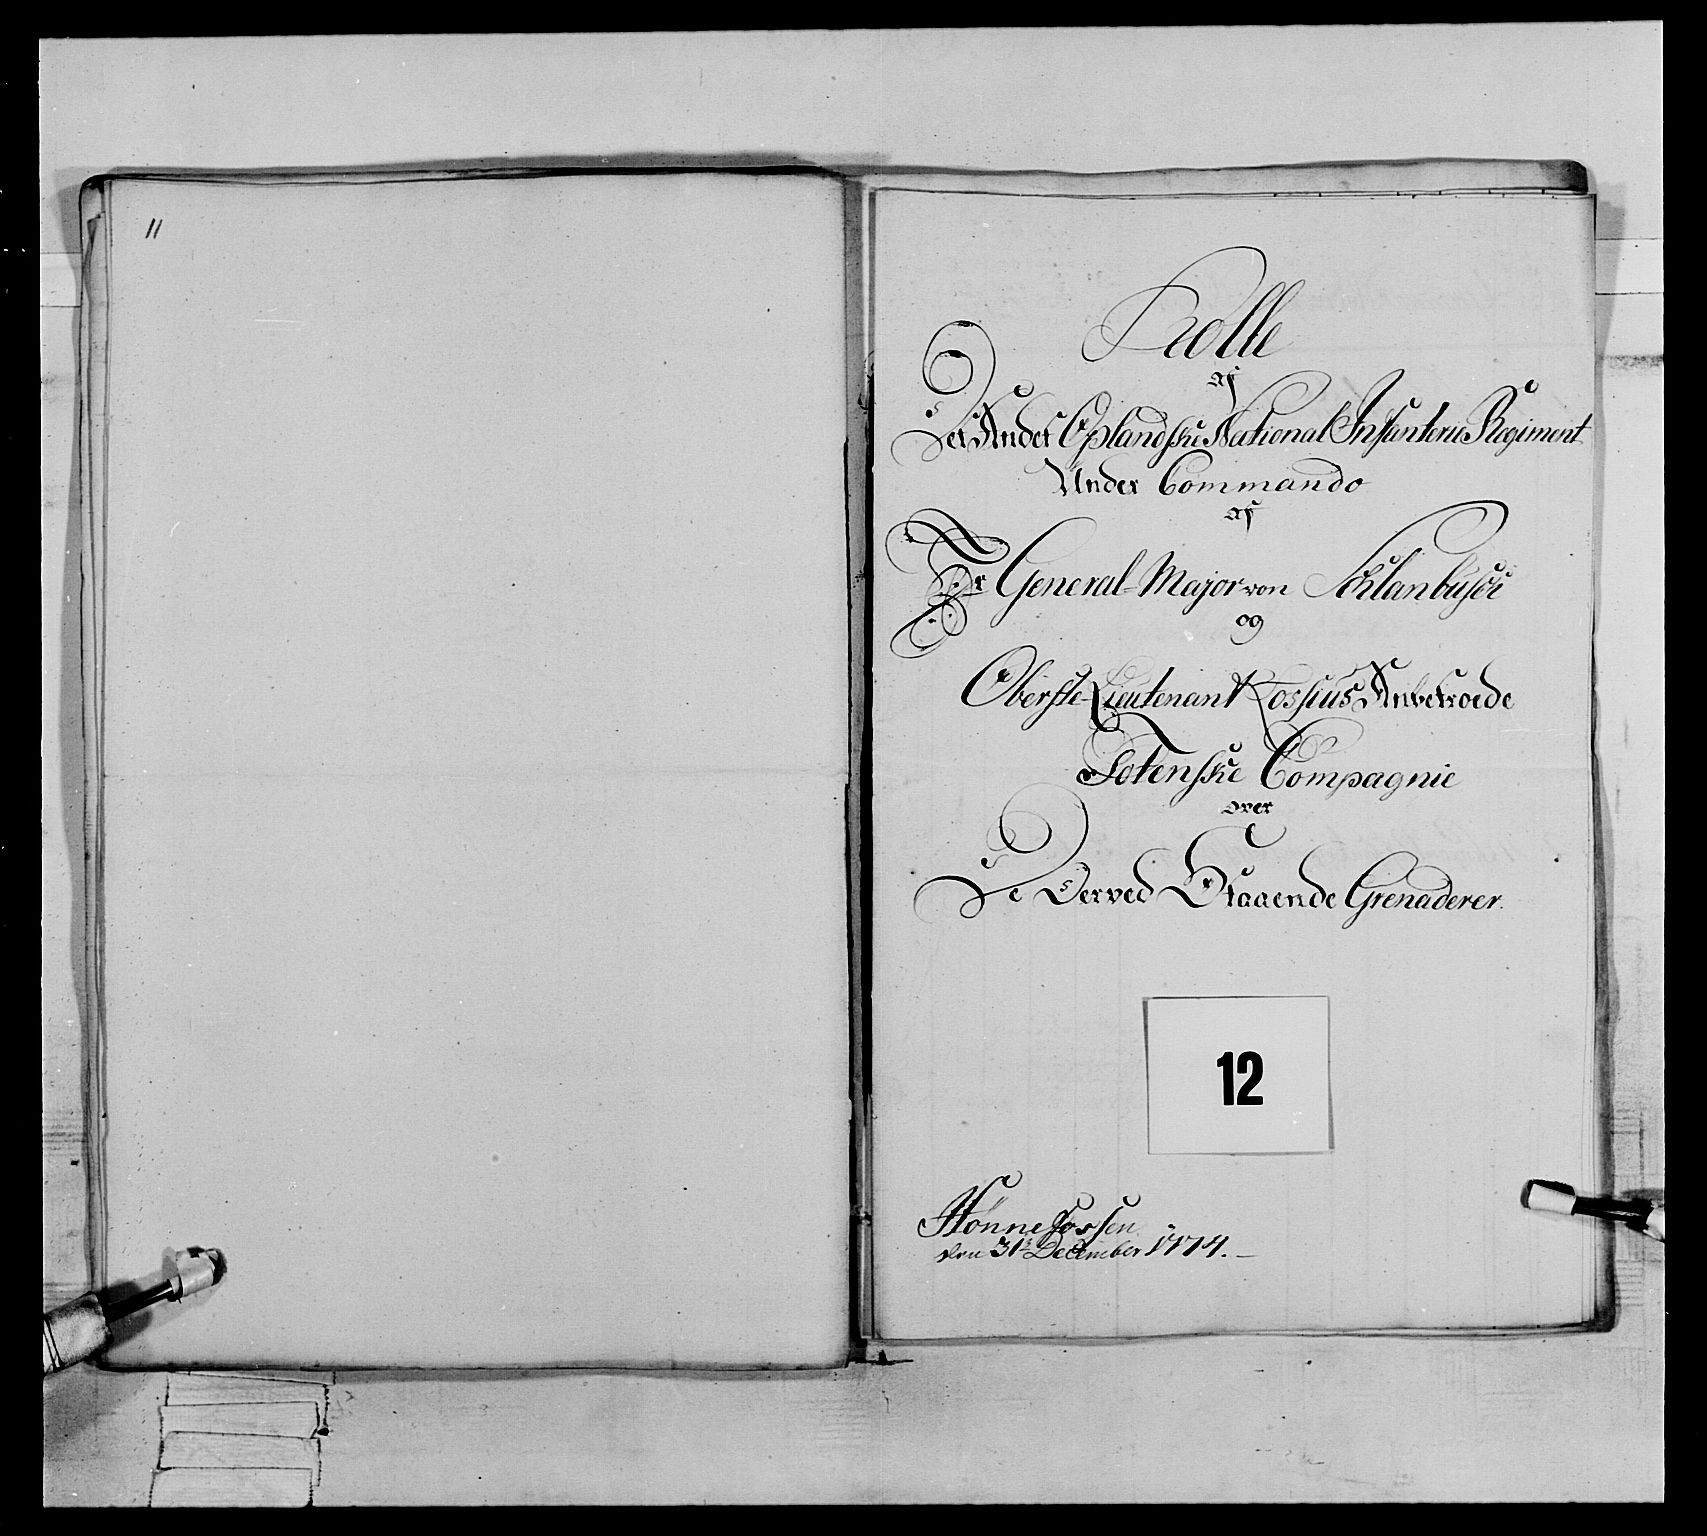 11
Rolle
af
Det Andet Oplandske National Infanterie Regiment
Under Commando
af
Hr General-Major von Schlanbusch
og
Oberste-Lieutenant Rossius Anbetroede
Totenske Compagnie
over
De Derved Staaende Grenaderer.
12
Hønnefossen
den 31t December 1774.